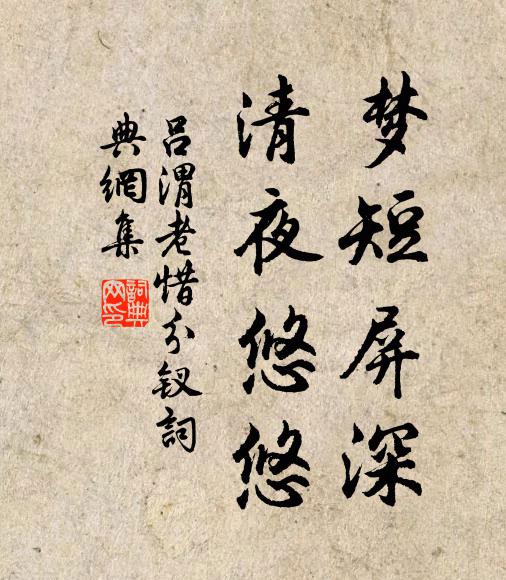 梦短屏深
清夜悠悠
吕渭老惜分钗詞
典網集
詞典
网印